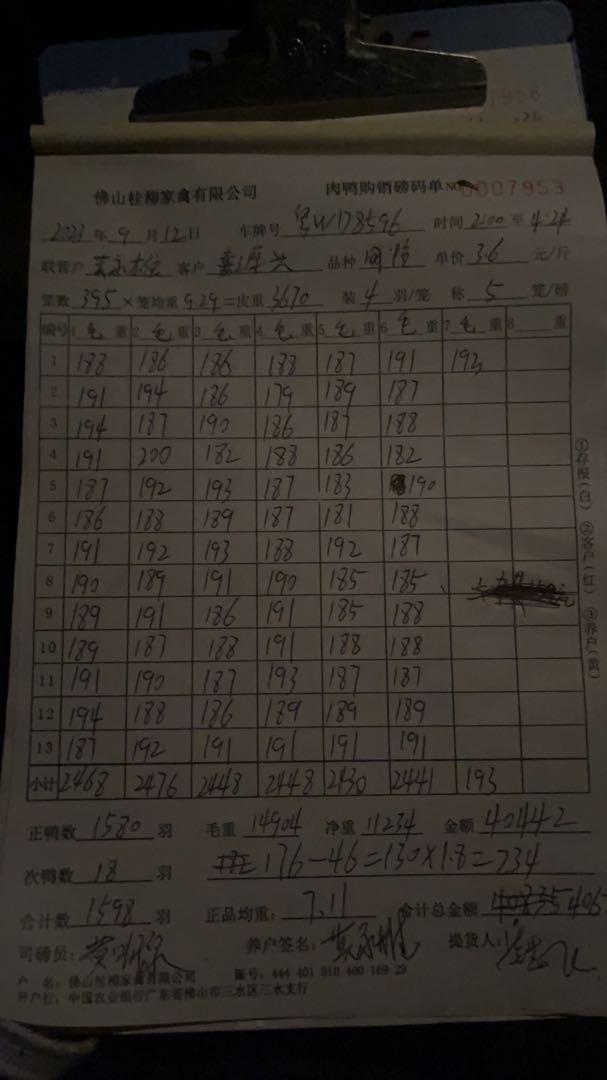 佛山桂柳家禽有限公司 肉鸭购销磅码单 NO 0007953
2023 年 9 月 12 日 车牌号 粤W178596 时间 2:00 至 4:24
联管户 客户 品种 单价 3.6 元/斤
笼数 395 ×笼均重 9.29 =皮重 3670 装 4 羽/笼 称 5 笼/磅
编号 1 毛 重 2 毛 重 3 毛 重 4 毛 重 5 毛 重 6 毛 重 7 毛 重 8 重
1 188 186 186 188 187 191 193
2 191 194 186 179 189 187
3 194 187 190 186 187 188
4 191 200 182 188 186 182
5 187 192 193 187 183 190
6 186 188 189 187 181 188
7 191 192 193 188 192 187
8 190 189 191 190 185 185
9 189 191 186 191 185 188
10 189 187 188 191 188 188
11 191 190 187 193 187 187
12 194 188 186 189 189 189
13 187 192 191 191 191 191
小计 2468 2476 2448 2448 2430 2441 193
①存根(白) ②客户(红) ③养户(黄)
正鸭数 1580 羽 毛重 14904 净重 11234 金额 40442
次鸭数 18 羽 176-46=130×1.8=234
合计数 1598 羽 正品均重: 7.11 合计总金额
司磅员: 养户签名: 提货人:
户 名: 佛山桂柳家禽有限公司 账号: 444 401 010 400 169 29
开户行: 中国农业银行广东省佛山市三水区三水支行